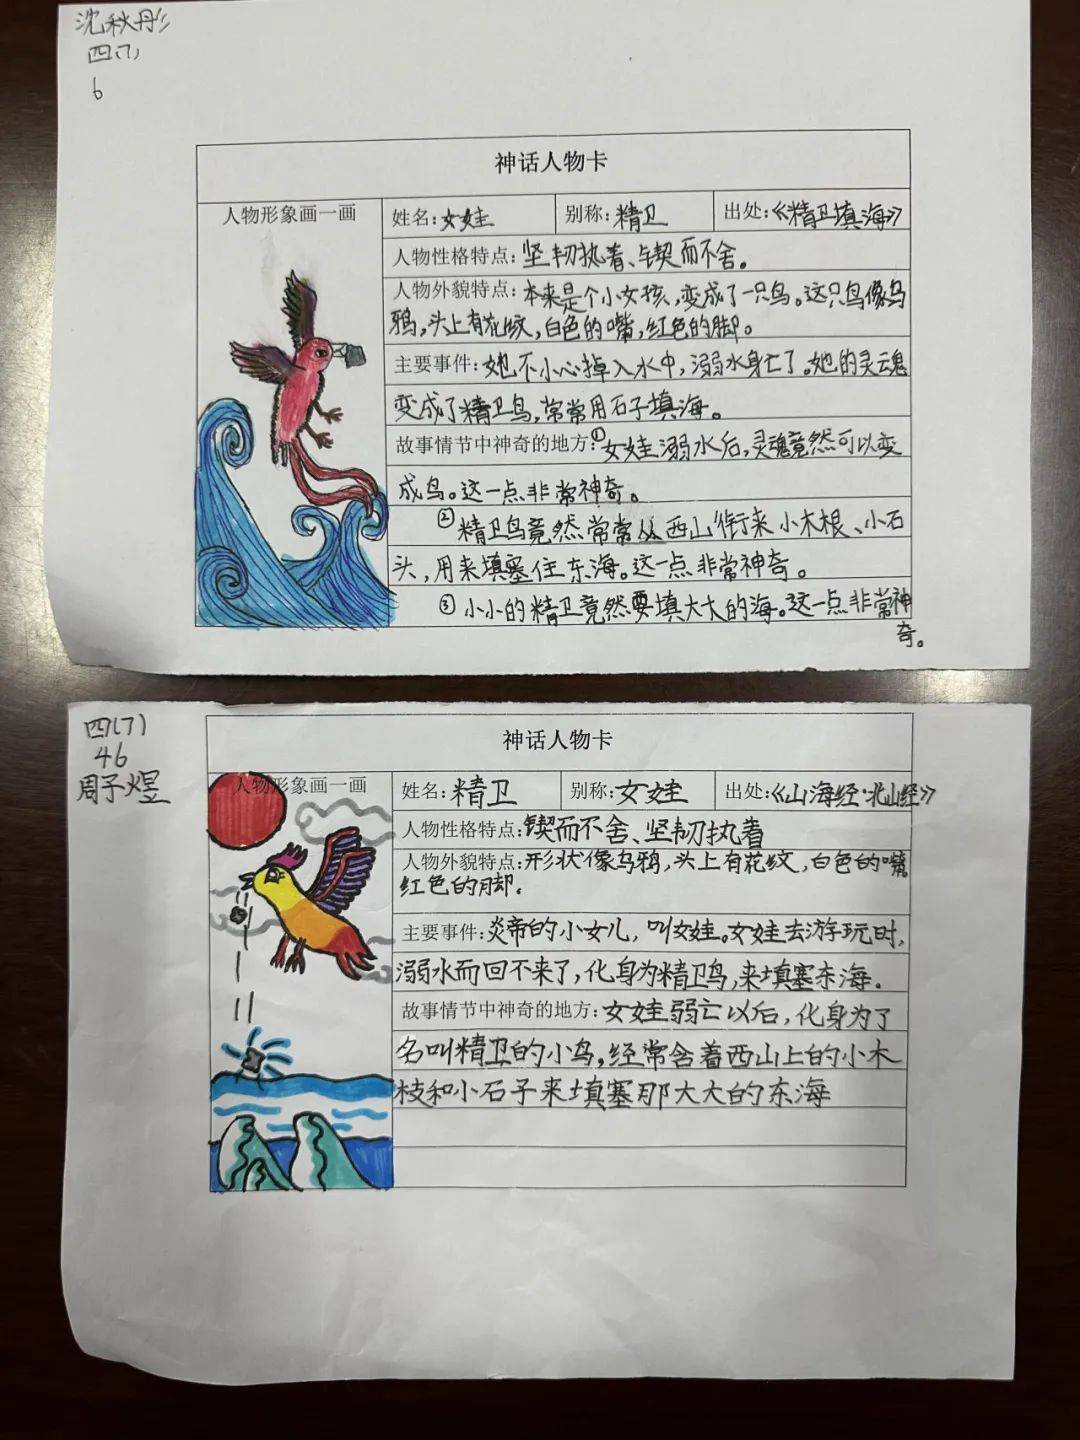 沈秋彤
四(7)
6
神话人物卡
人物形象画一画
姓名:女娃 别称:精卫 出处:《精卫填海》
人物性格特点:坚韧执着、锲而不舍。
人物外貌特点:本来是个小女孩,变成了一只鸟。这只鸟像乌
鸦,头上有花纹,白色的嘴,红色的脚。
主要事件:她不小心掉入水中,溺水身亡了。她的灵魂
变成了精卫鸟,常常用石子填海。
故事情节中神奇的地方:①女娃溺水后,灵魂竟然可以变
成鸟。这一点非常神奇。
②精卫鸟竟然常常从西山衔来小木根、小石
头,用来填塞住东海。这一点非常神奇。
③小小的精卫竟然要填大大的海。这一点非常神
奇。
四(7)
46
周子煜
神话人物卡
人物形象画一画
姓名:精卫 别称:女娃 出处:《山海经·北山经》
人物性格特点:锲而不舍、坚韧执着
人物外貌特点:形状像乌鸦,头上有花纹,白色的嘴
红色的脚。
主要事件:炎帝的小女儿,叫女娃。女娃去游玩时,
溺水而回不来了,化身为精卫鸟,来填塞东海.
故事情节中神奇的地方:女娃弱亡以后,化身为了
名叫精卫的小鸟,经常含着西山上的小木
枝和小石子来填塞那大大的东海